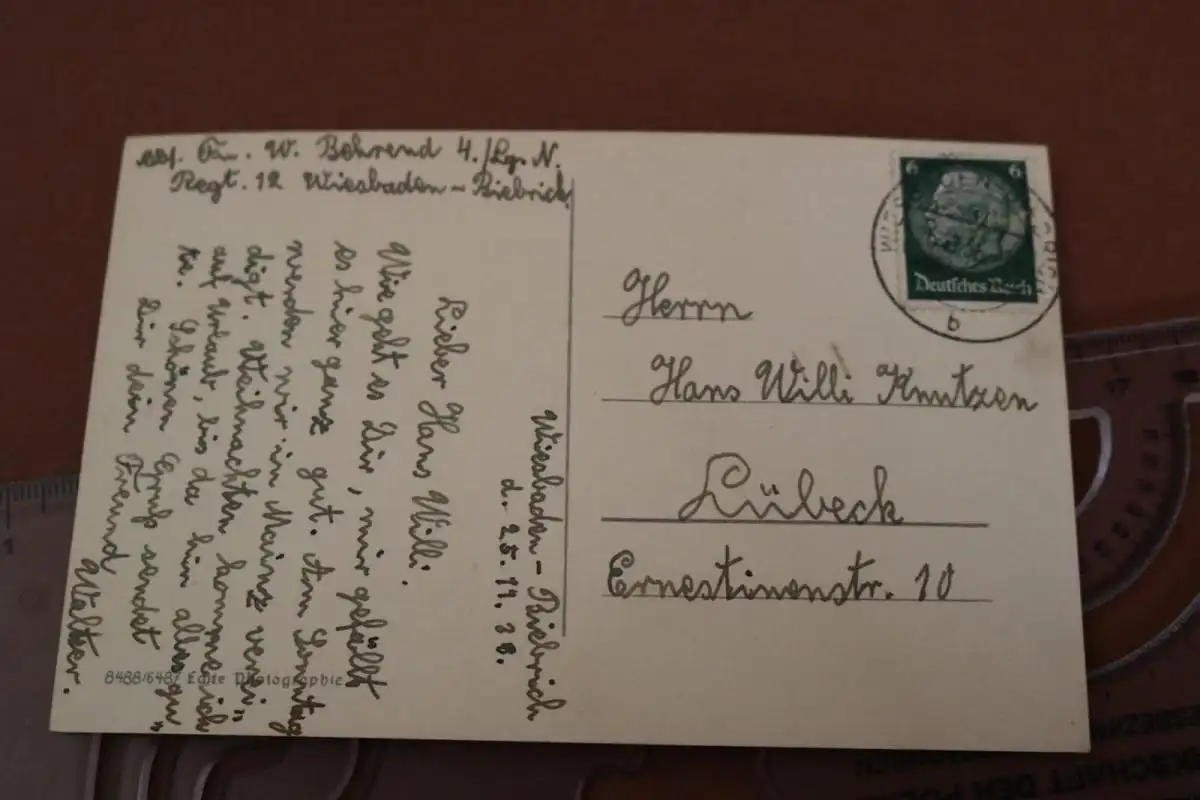 Abs. Fu. W. Bohrend 4./Lg. N.
Regt. 12 Wiesbaden-Biebrich
Wiesbaden-Biebrich
d. 25.11.38.
Lieber Hans Willi.
Wie geht es Dir, mir gefällt
es hier ganz gut. Am Sonntag
werden wir in Mainz verei„
digt. Weihnachten komme ich
auf Urlaub, bis da hin alles gu„
te. Schönen Gruß sendet
Dir dein Freund
Walter.
8488/6487 Echte Photographie
6 6
Deutsches Reich
b
Herrn
Hans Willi Knutzen
Lübeck
Ernestinenstr. 10
1
17